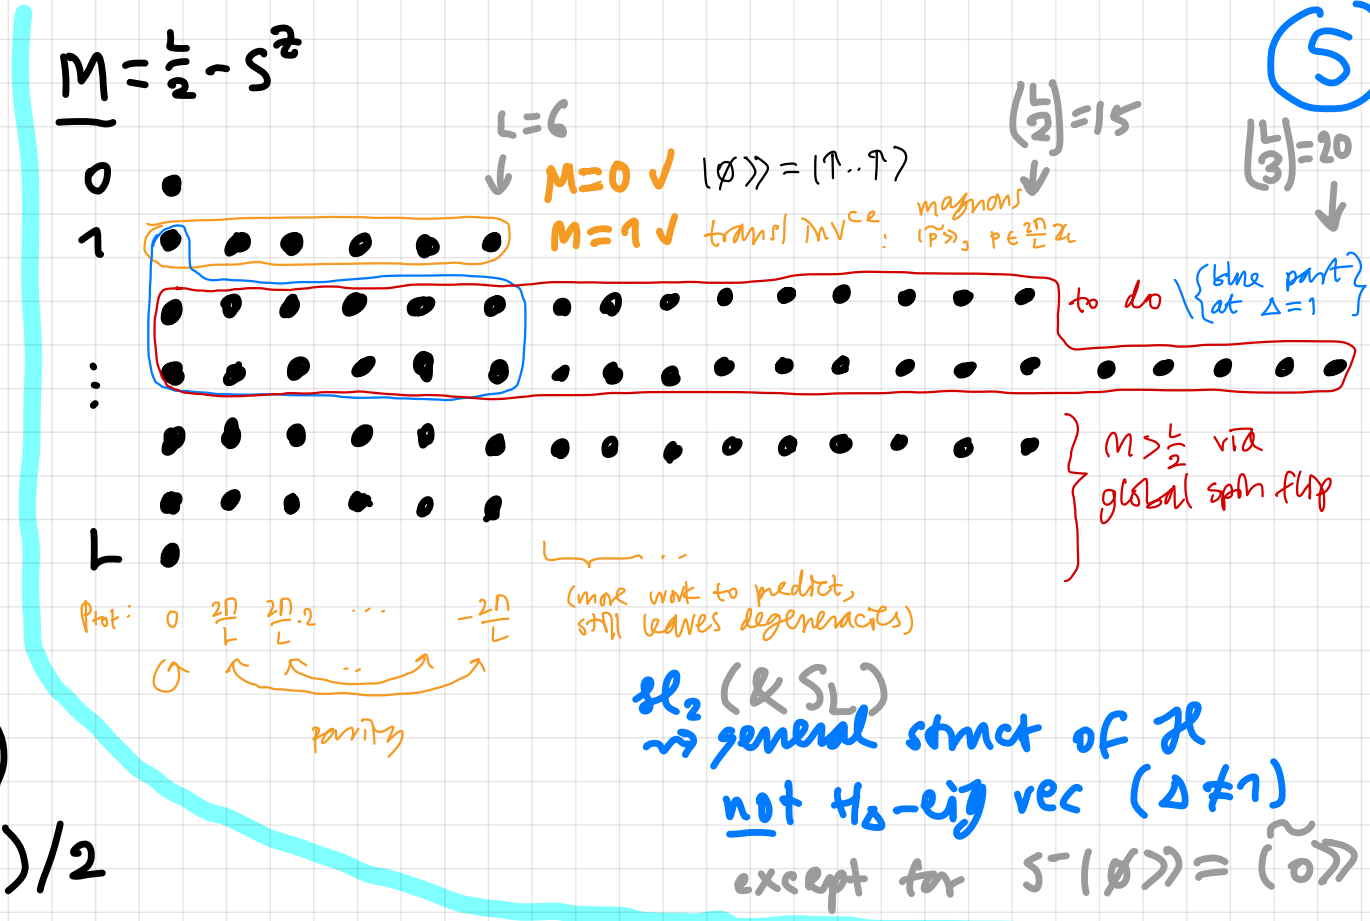 M = L/2 - S^z
5
L=6
(L 2)=15
(L 3)=20
0
M=0 ✓ |∅⟩⟩ = |↑..↑⟩
1
M=1 ✓ transl inv^ce: magnons
|p̃⟩⟩, p ∈ 2π/L ℤ_L
to do \ {blue part
at Δ=1}
⋮
M > L/2 via
global spin flip
L
Ptot: 0 2π/L 2π/L·2 ... -2π/L
...
(more work to predict,
still leaves degeneracies)
..
parity
sl₂ (& S_L)
⇝ general struct of H
not H_Δ-eig vec (Δ≠1)
except for S⁻|∅⟩⟩ = |0̃⟩⟩
)
)/2